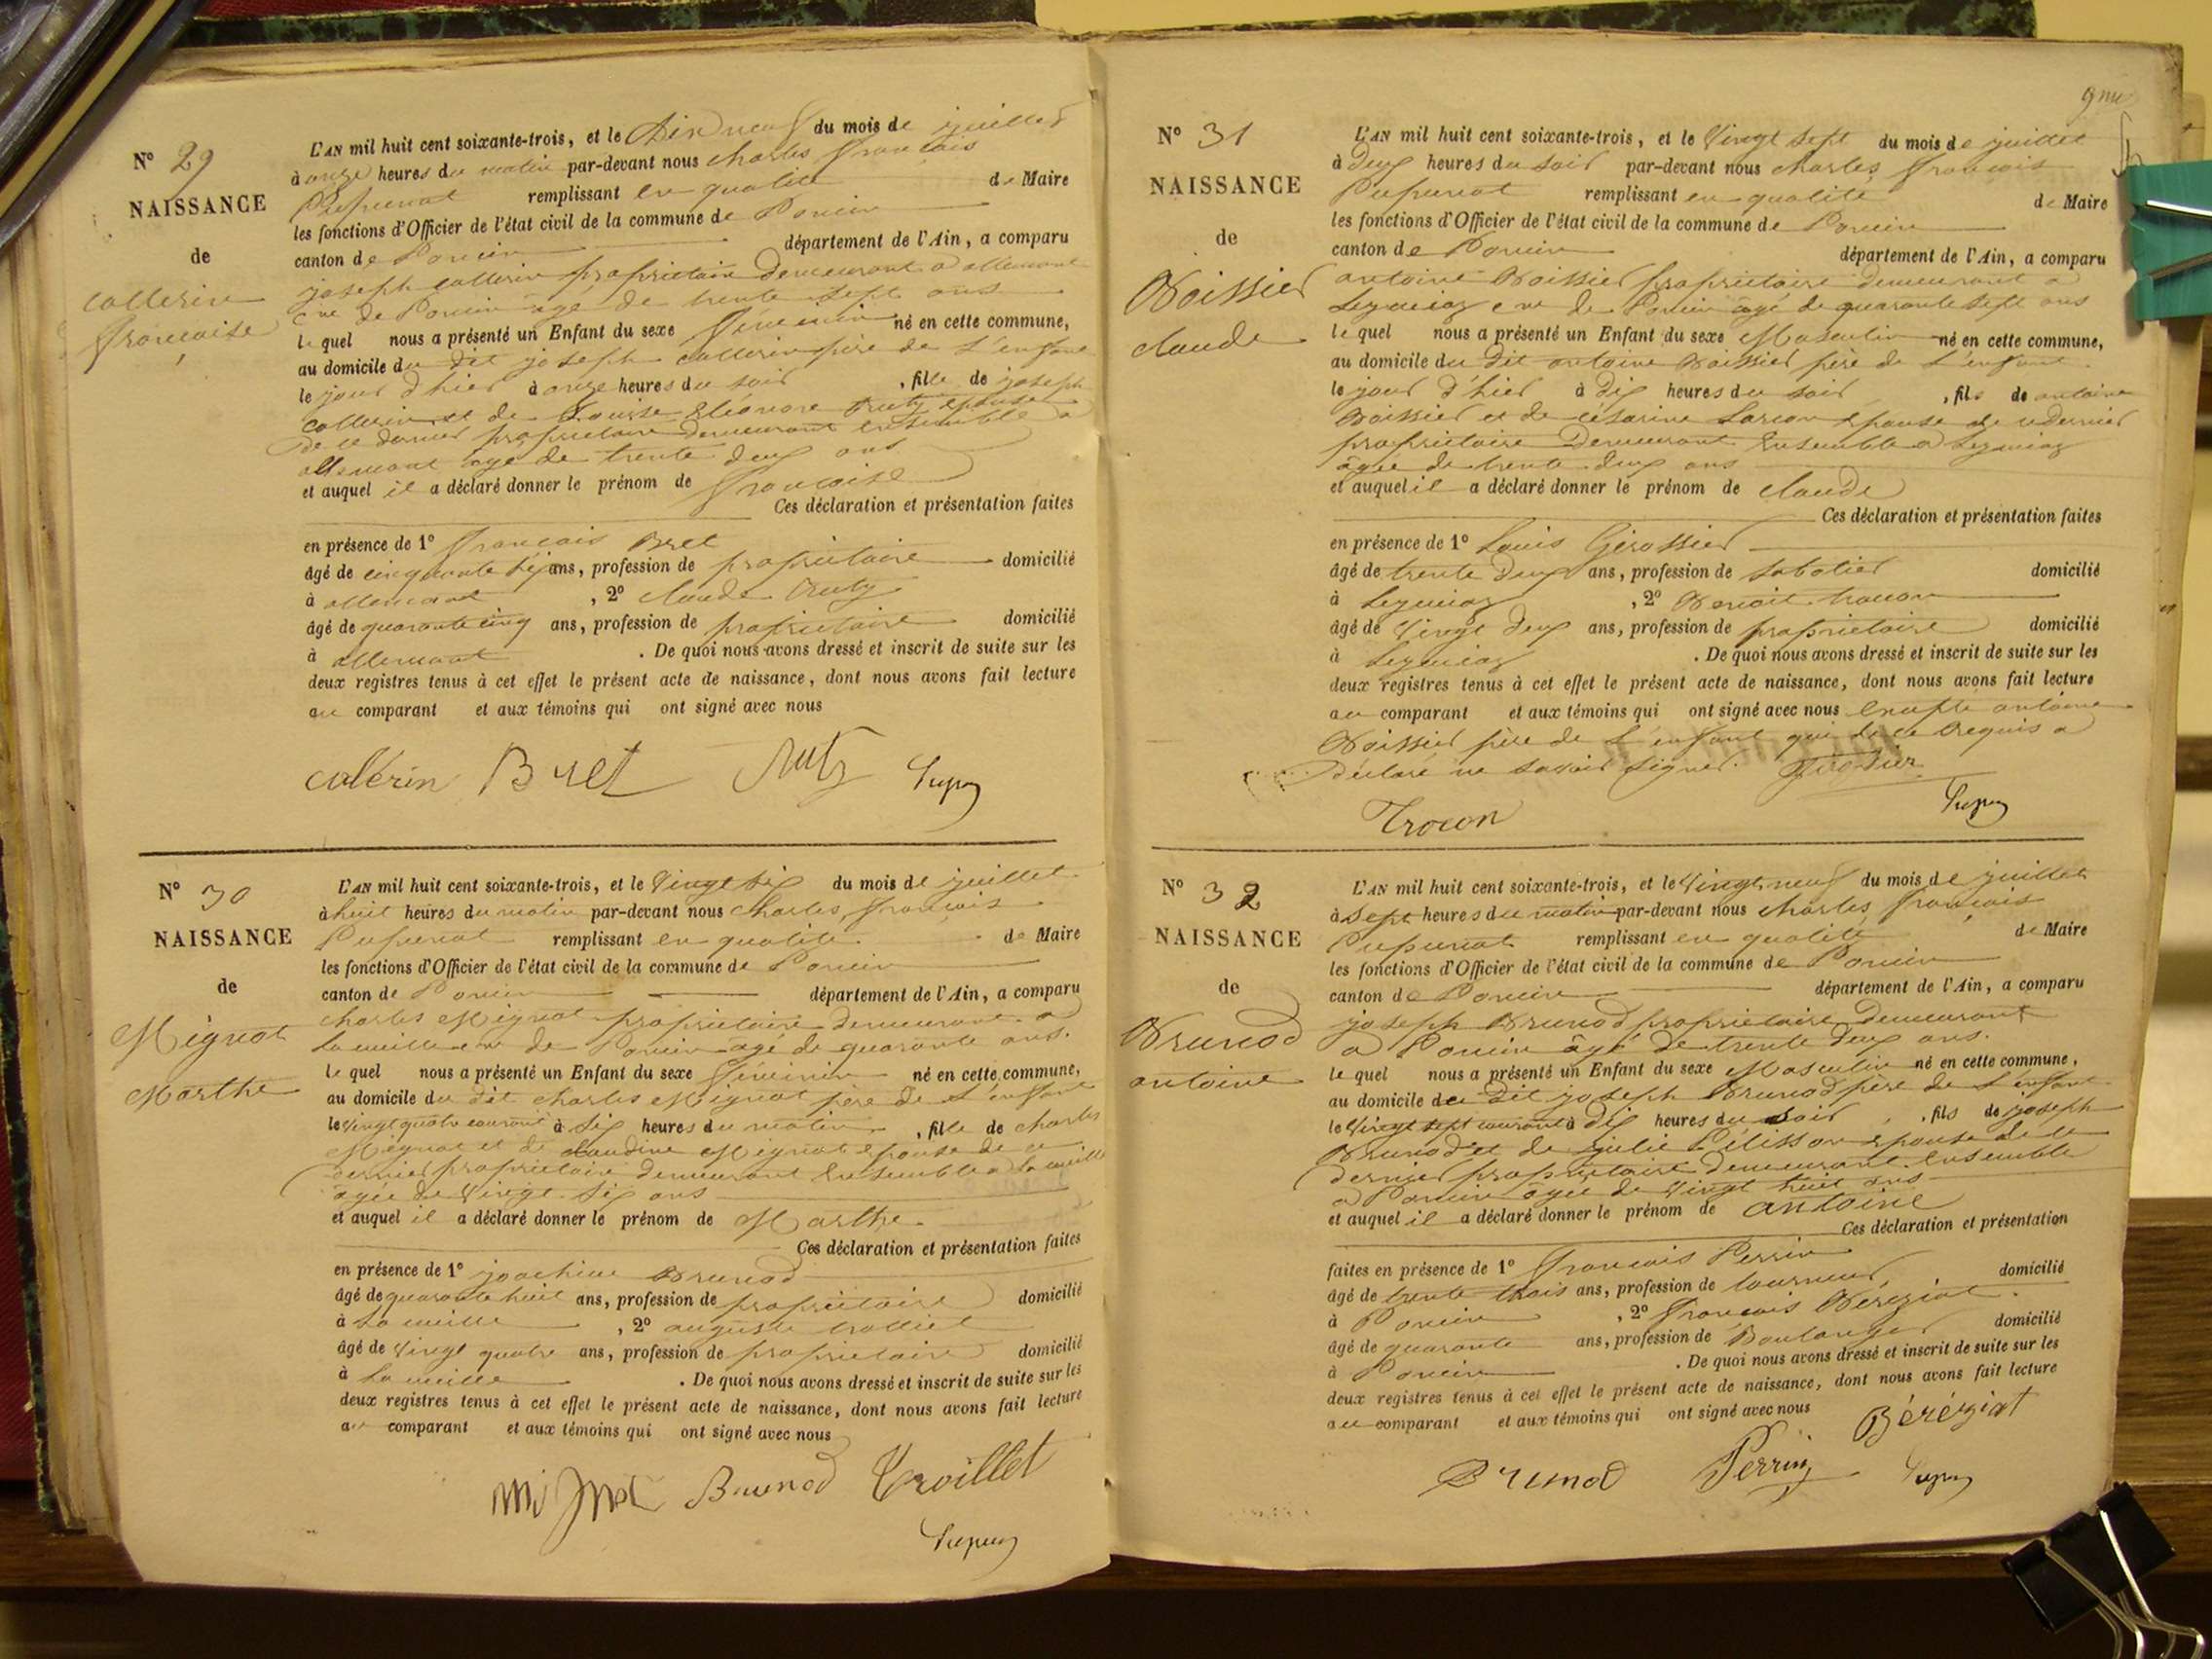 N° 29
NAISSANCE
de
Collerin
françoise
L'AN mil huit cent soixante-trois, et le Dix neuf du mois de juillet
à onze heures du matin par-devant nous charles françois
remplissant en qualité de Maire
les fonctions d'Officier de l'état civil de la commune de Poncin
canton de Poncin département de l'Ain, a comparu
joseph collerin propriétaire Demeurant a allement
cne de Poncin âgé de trente sept ans
le quel nous a présenté un Enfant du sexe féminin né en cette commune,
au domicile du dit joseph collerin père de l'enfant
le jour d'hier à onze heures du soir, fille de joseph
collerin et de Louise Eléonore épouse
de ce dernier propriétaire demeurant ensemble a
allement âgé de trente deux ans
et auquel il a déclaré donner le prénom de françoise
Ces déclaration et présentation faites
en présence de 1° françois Bret
âgé de cinquante six ans, profession de propriétaire domicilié
à allement, 2° claude
âgé de quarante cinq ans, profession de propriétaire domicilié
à allement. De quoi nous avons dressé et inscrit de suite sur les
deux registres tenus à cet effet le présent acte de naissance, dont nous avons fait lecture
au comparant et aux témoins qui ont signé avec nous
colérin Bret
N° 30
NAISSANCE
de
Mignot
Marthe
L'AN mil huit cent soixante-trois, et le Vingt six du mois de juillet
à huit heures du matin par-devant nous charles françois
remplissant en qualité de Maire
les fonctions d'Officier de l'état civil de la commune de Poncin
canton de Poncin département de l'Ain, a comparu
charles Mignot propriétaire demeurant a
la cueille cne de Poncin âgé de quarante ans.
le quel nous a présenté un Enfant du sexe féminin né en cette commune,
au domicile du dit charles Mignot père de l'enfant
le vingt quatre courant à six heures du matin, fille de charles
Mignot et de claudine Mignot épouse de ce
dernier propriétaire demeurant ensemble a la cueille
âgée de vingt six ans
et auquel il a déclaré donner le prénom de Marthe
Ces déclaration et présentation faites
en présence de 1° joachim Brunod
âgé de quarante huit ans, profession de propriétaire domicilié
à La cueille, 2° auguste trolliet
âgé de vingt quatre ans, profession de propriétaire domicilié
à La cueille. De quoi nous avons dressé et inscrit de suite sur les
deux registres tenus à cet effet le présent acte de naissance, dont nous avons fait lecture
au comparant et aux témoins qui ont signé avec nous
Brunod Troillet
N° 31
NAISSANCE
de
Boissier
claude
L'AN mil huit cent soixante-trois, et le Vingt sept du mois de juillet
à deux heures du soir par-devant nous charles françois
remplissant en qualité de Maire
les fonctions d'Officier de l'état civil de la commune de Poncin
canton de Poncin département de l'Ain, a comparu
antoine Boissier propriétaire demeurant a
Leymiaz cne de Poncin âgé de quarante sept ans
le quel nous a présenté un Enfant du sexe Masculin né en cette commune,
au domicile du dit antoine Boissier père de l'enfant
le jour d'hier à dix heures du soir, fils de antoine
Boissier et de césarine épouse de ce dernier
propriétaire Demeurant Ensemble a Leymiaz
âgée de trente deux ans
et auquel il a déclaré donner le prénom de claude
Ces déclaration et présentation faites
en présence de 1° Louis
âgé de trente deux ans, profession de sabotier domicilié
à Leymiaz, 2° Benoit trocon
âgé de Vingt deux ans, profession de propriétaire domicilié
à Leymiaz. De quoi nous avons dressé et inscrit de suite sur les
deux registres tenus à cet effet le présent acte de naissance, dont nous avons fait lecture
au comparant et aux témoins qui ont signé avec nous Excepté antoine
Boissier père de l'enfant qui de ce requis a
déclaré ne savoir signer.
Trocon
N° 32
NAISSANCE
de
Brunod
antoine
L'AN mil huit cent soixante-trois, et le Vingt neuf du mois de juillet
à sept heures du matin par-devant nous charles françois
remplissant en qualité de Maire
les fonctions d'Officier de l'état civil de la commune de Poncin
canton de Poncin département de l'Ain, a comparu
joseph Brunod propriétaire Demeurant
a Poncin âgé de trente deux ans.
le quel nous a présenté un Enfant du sexe Masculin né en cette commune,
au domicile du dit joseph Brunod père de l'enfant
le Vingt sept courant à dix heures du soir, fils de joseph
Brunod et de julie Pélisson épouse de ce
dernier propriétaire demeurant Ensemble
a Poncin âgée de vingt huit ans
et auquel il a déclaré donner le prénom de antoine
Ces déclaration et présentation
faites en présence de 1° françois Perrin
âgé de trente trois ans, profession de tourneur domicilié
à Poncin, 2° françois Bereziat
âgé de quarante ans, profession de Boulanger domicilié
à Poncin. De quoi nous avons dressé et inscrit de suite sur les
deux registres tenus à cet effet le présent acte de naissance, dont nous avons fait lecture
au comparant et aux témoins qui ont signé avec nous
Béréziat
Brunod Perrin